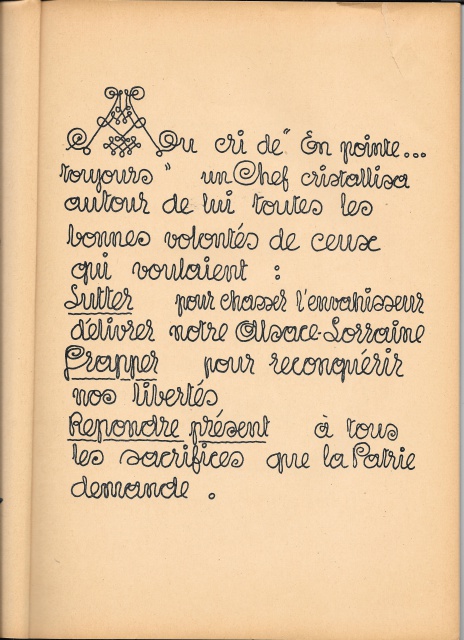 Au cri de "En pointe...
toujours" un Chef cristallisa
autour de lui toutes les
bonnes volontés de ceux
qui voulaient :
Lutter pour chasser l'envahisseur
délivrer notre Alsace-Lorraine
Frapper pour reconquérir
nos libertés
Repondre présent à tous
les sacrifices que la Patrie
demande .